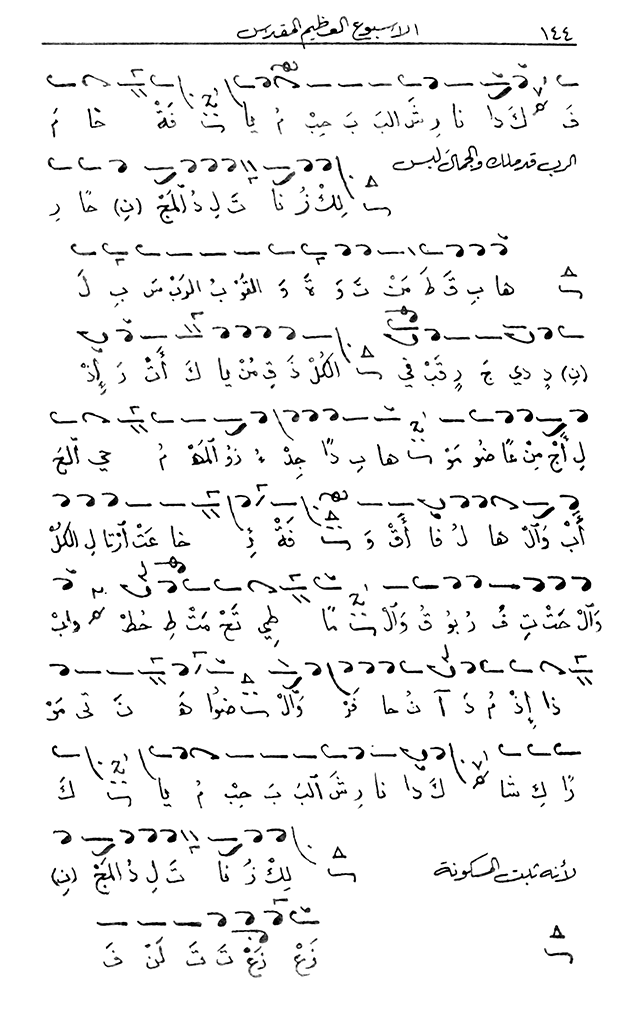 ١٤٤ الاسبوع العظيم المقدس
فَ كَ دا نا رِشَ البَ بَ حِبْ مُ يا فَةْ خا مَ
الرب قد ملك والجمال لبس لِكْ زُ نا تَ لِ دُ الْمَجْ (نِ) خا رِ
ها بِ قَطَ مَنْ تَ وَ ةً وَ القُوْ بُ الرَبْ سَ بِ لَ
(نِ) دٍ دي جَ رِقَبْ في الكُلْ ذَ قِ مُنْ يا كَ أَتْ رَ إِذْ
لِ أَجْ مِنْ عًا ضُو مَوْ ها بِ دًا جِدْ ءُ زَوُ الْمَهْ مُ حي الْجَ
أَبْ وَالْ ها لُ فا أَقْ وَ فَةْ ئِ خا عَتْ اَرْتا لِ الكُلْ
وَالْ حَتْ تِ فُ رُبُوْ قُ وَالْ مًا طِي تَحْ مَتْ طِ حُطْ وابْ
ذا إِذْ مُ دَ آ تُ حا فَرْ وَالْ ضَوُا هَ نَ تى مَوْ
رًا كِ شا كَ دا نا رِشَ البَ بَ حِبْ مُ يا كَ
لأنه ثبت المسكونة لِكْ زُ نا تَ لِ دُ الْمَجْ (نِ)
زَعْ زَعْ تَ تَ لَنْ فَ